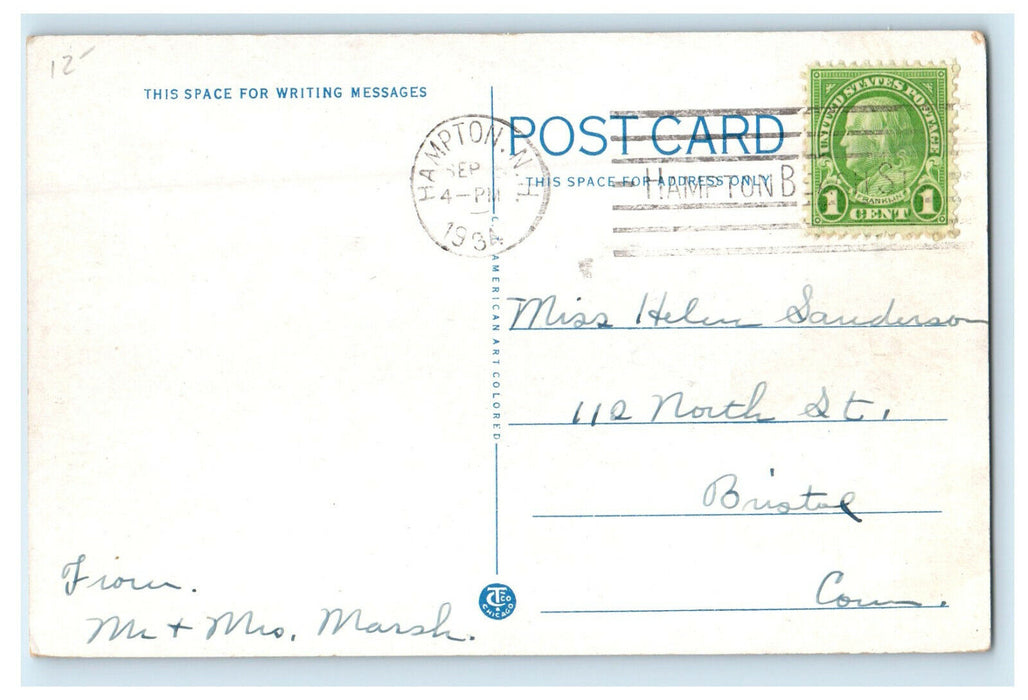 12-
THIS SPACE FOR WRITING MESSAGES
POST CARD
THIS SPACE FOR ADDRESS ONLY
HAMPTON, N.H.
SEP
4-PM
193
HAMPTON
UNITED STATES POSTAGE
FRANKLIN
1 CENT 1
AMERICAN ART COLORED
Miss Helen Sanderson
112 North St.
Bristol
Conn.
From.
Mr + Mrs. Marsh.
CT CO
CHICAGO